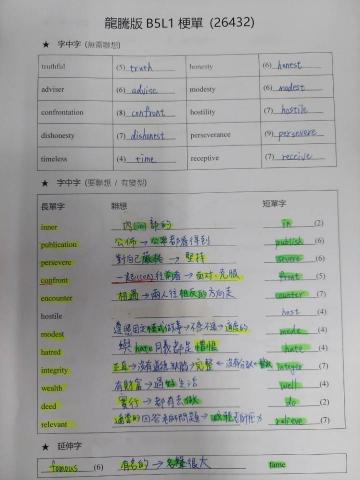 龍騰版 B5L1 梗單 (26432)
★ 字中字 (無需聯想)
truthful (5) truth honesty (6) honest
adviser (6) advise modesty (6) modest
confrontation (8) confront hostility (7) hostile
dishonesty (7) dishonest perseverance (9) persevere
timeless (4) time receptive (7) receive
★ 字中字 (要聯想 / 有變型)
長單字 聯想 短單字
inner 內部的 in (2)
publication 公佈→ publish (6)
persevere 對自己嚴格→堅持 severe (6)
confront 面對、克服 front (5)
encounter 相遇→兩人往相反的方向走 counter (7)
hostile host (4)
modest mode (4)
hatred 與hate同義都是憎恨 hate (4)
integrity 正直→ 完整 integer (7)
wealth 有財富→過好生活 well (4)
deed 實行→都有去做 do (2)
relevant relieve (7)
★ 延伸字
famous (6) 有名的→名聲很大 fame